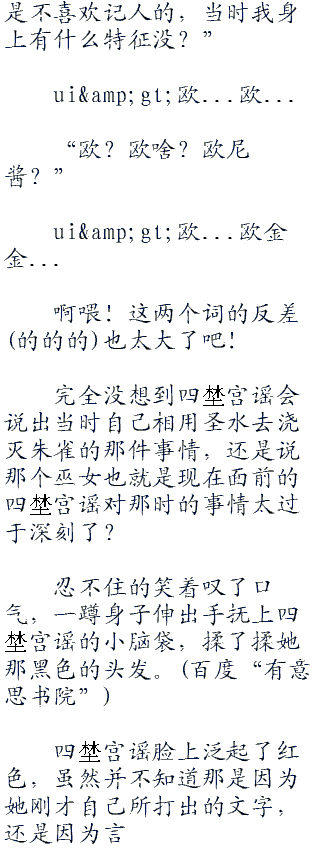 是不喜欢记人的，当时我身
上有什么特征没？”
ui&amp;gt;欧...欧...
“欧？欧啥？欧尼
酱？”
ui&amp;gt;欧...欧金
金...
啊喂！这两个词的反差
(的的的)也太大了吧！
完全没想到四埜宫谣会
说出当时自己相用圣水去浇
灭朱雀的那件事情，还是说
那个巫女也就是现在面前的
四埜宫谣对那时的事情太过
于深刻了？
忍不住的笑着叹了口
气，一蹲身子伸出手抚上四
埜宫谣的小脑袋，揉了揉她
那黑色的头发。(百度“有意
思书院”)
四埜宫谣脸上泛起了红
色，虽然并不知道那是因为
她刚才自己所打出的文字，
还是因为言